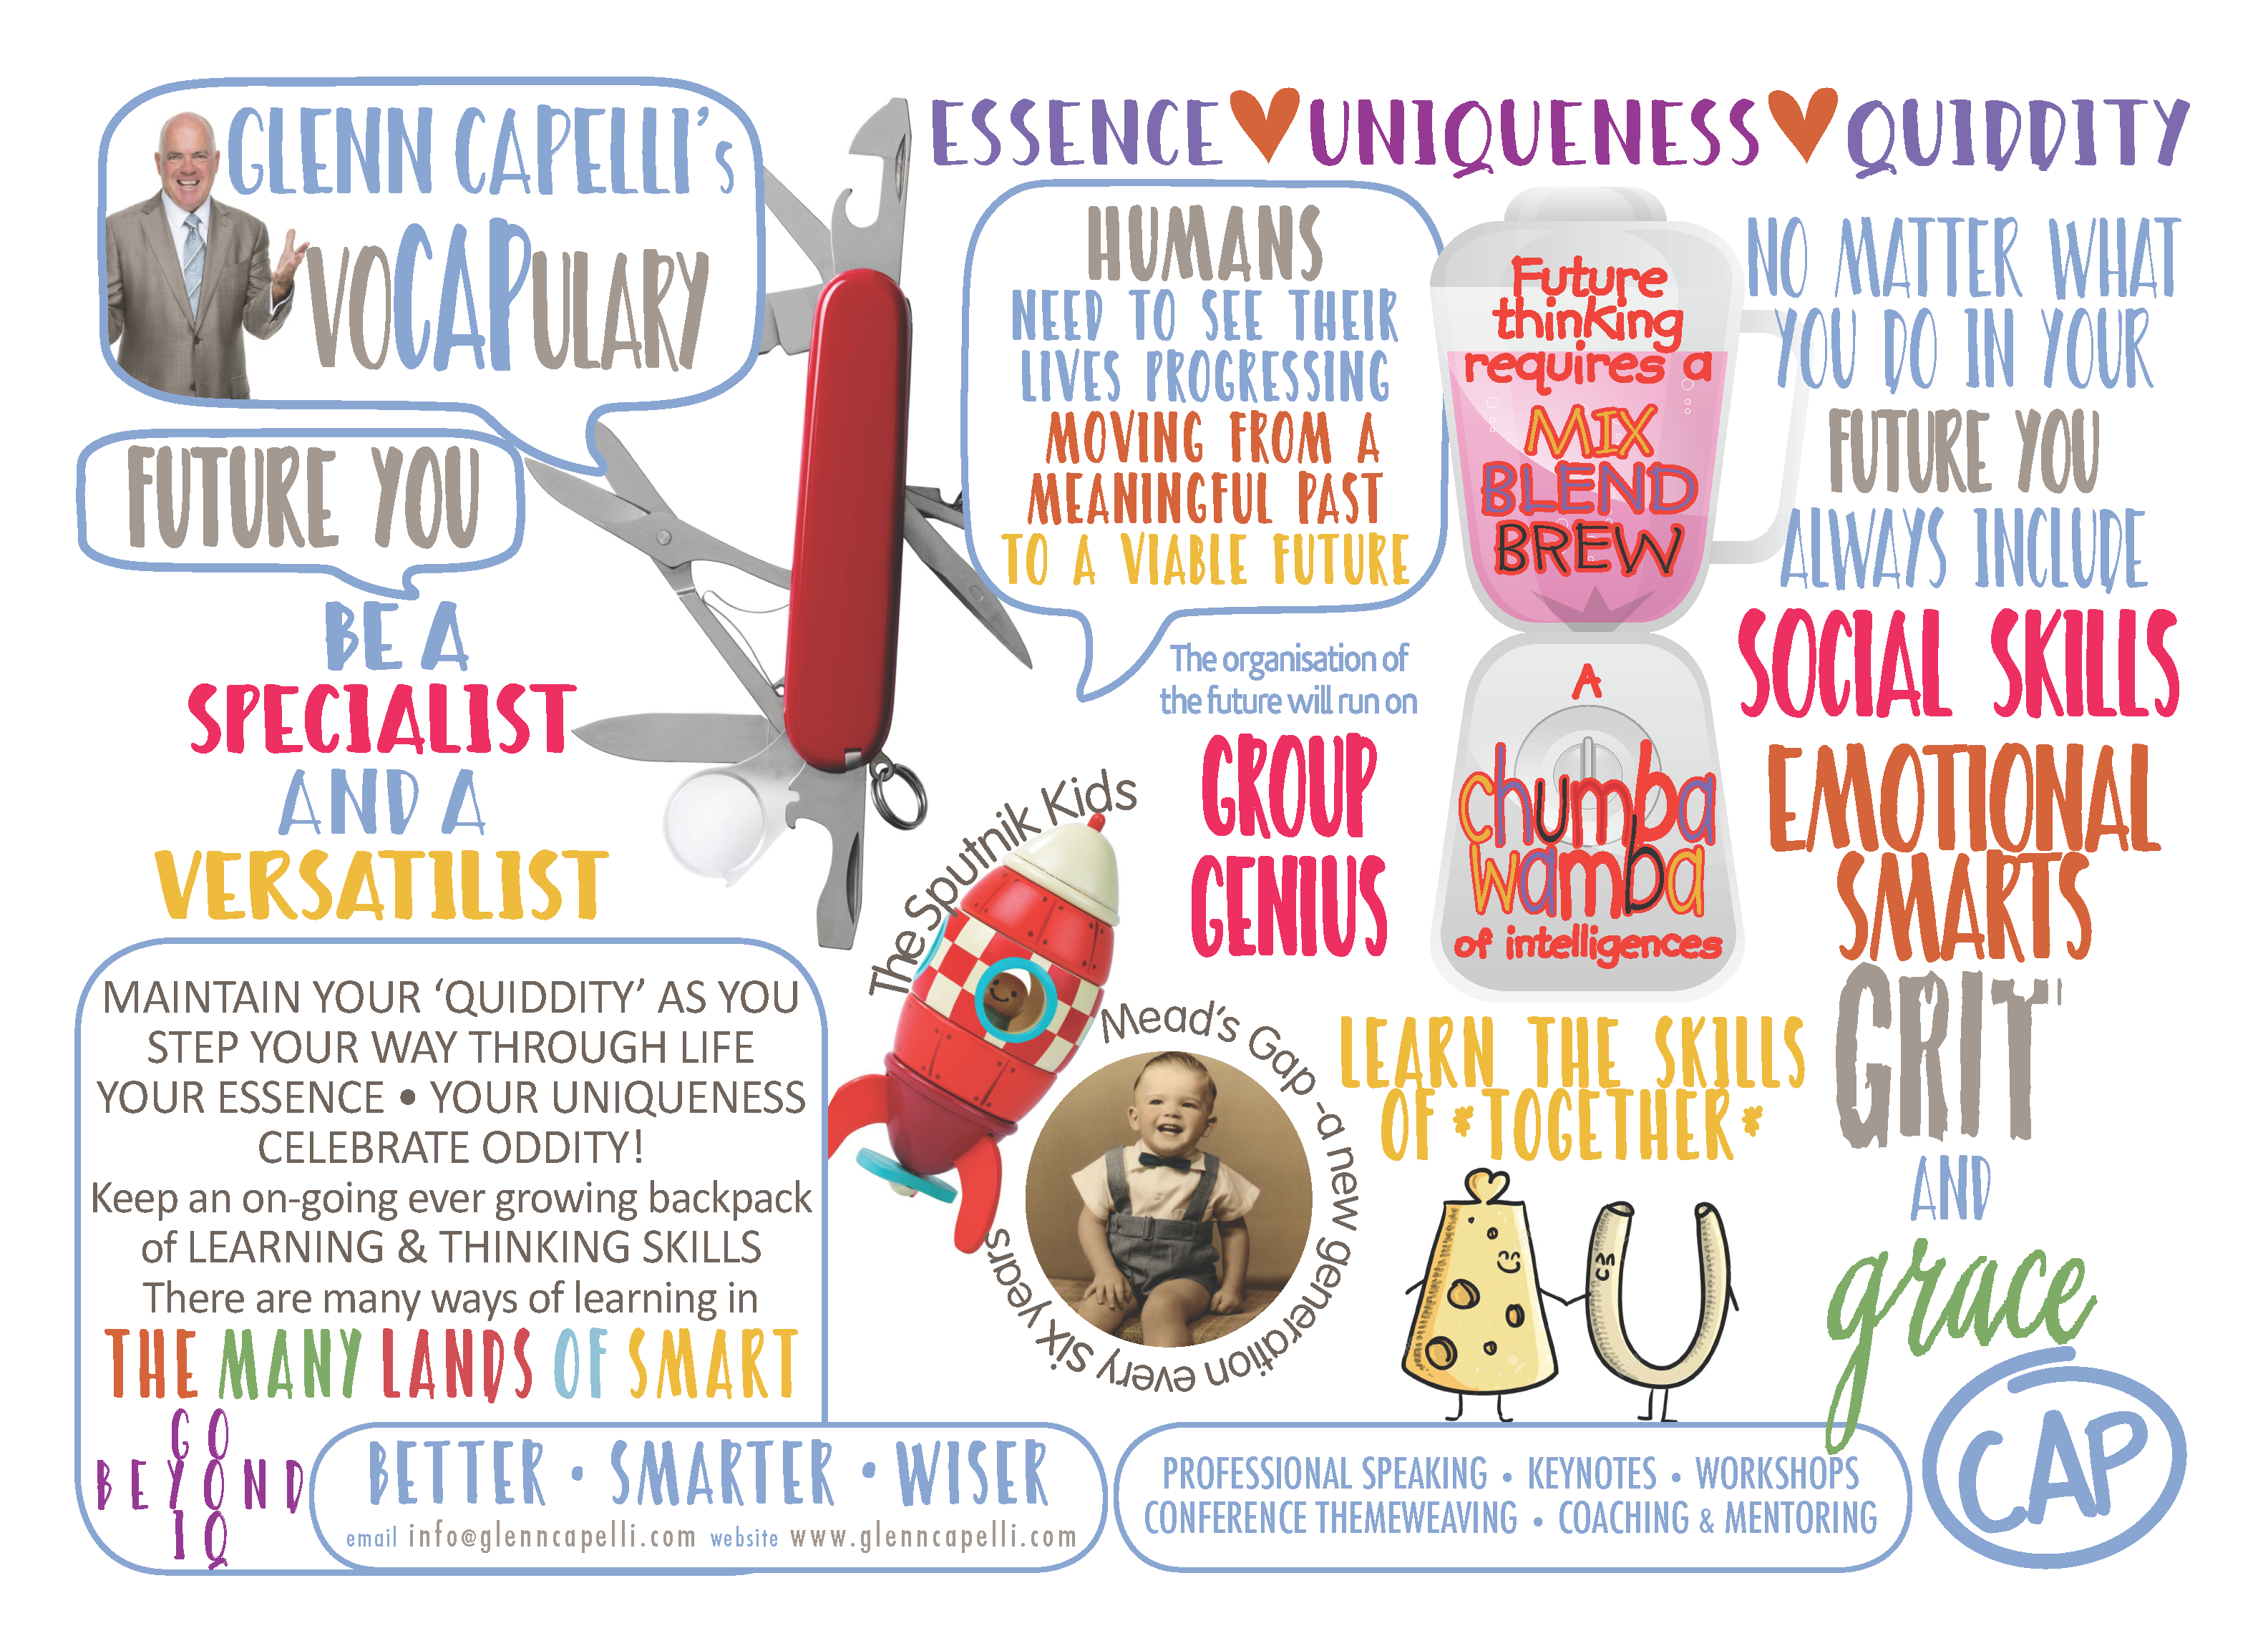 GLENN CAPELLI's
VOCAPULARY
FUTURE YOU
BE A
SPECIALIST
AND A
VERSATILIST
MAINTAIN YOUR ‘QUIDDITY’ AS YOU
STEP YOUR WAY THROUGH LIFE
YOUR ESSENCE • YOUR UNIQUENESS
CELEBRATE ODDITY!
Keep an on-going ever growing backpack
of LEARNING & THINKING SKILLS
There are many ways of learning in
THE MANY LANDS OF SMART
GO
BEYOND
IQ
BETTER • SMARTER • WISER
email info@glenncapelli.com website www.glenncapelli.com
ESSENCE ♥ UNIQUENESS ♥ QUIDDITY
HUMANS
NEED TO SEE THEIR
LIVES PROGRESSING
MOVING FROM A
MEANINGFUL PAST
TO A VIABLE FUTURE
The organisation of
the future will run on
GROUP
GENIUS
The Sputnik Kids
Mead's Gap -a new generation every six years
Future
thinking
requires a
MIX
BLEND
BREW
A
chumba
wamba
of intelligences
LEARN THE SKILLS
OF *TOGETHER*
NO MATTER WHAT
YOU DO IN YOUR
FUTURE YOU
ALWAYS INCLUDE
SOCIAL SKILLS
EMOTIONAL
SMARTS
GRIT
AND
grace
PROFESSIONAL SPEAKING • KEYNOTES • WORKSHOPS
CONFERENCE THEMEWEAVING • COACHING & MENTORING
CAP